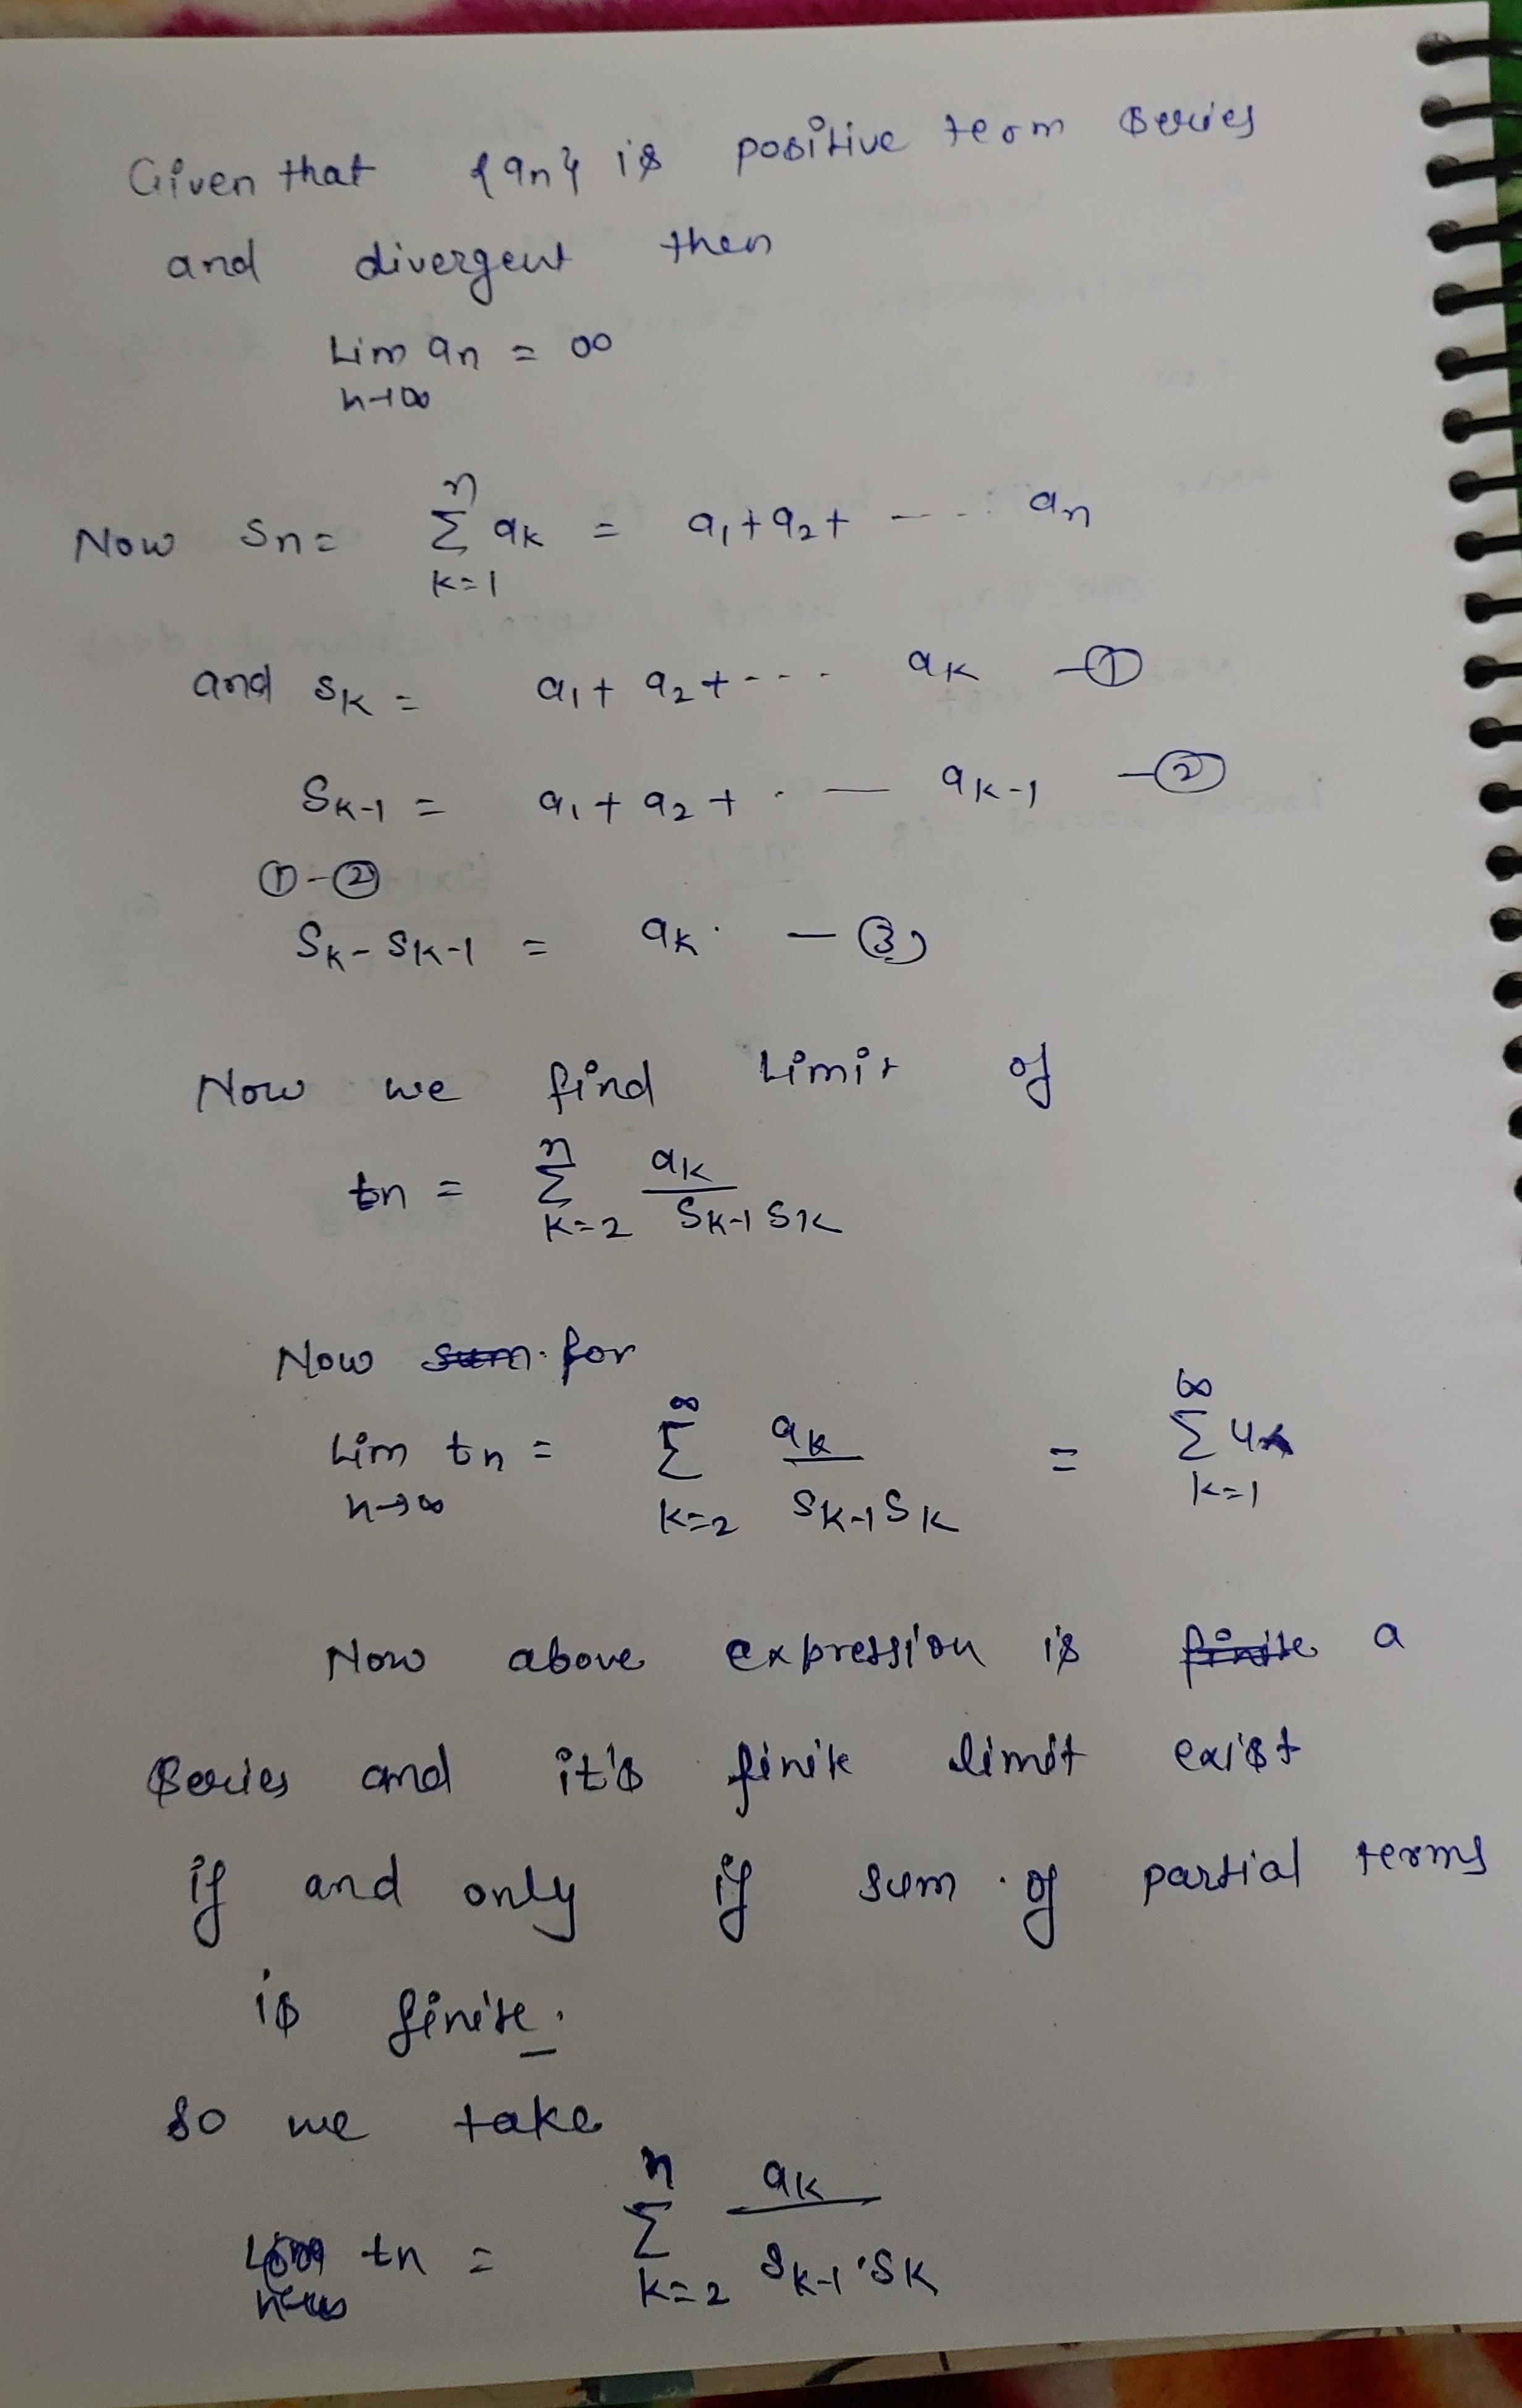 Given that {an} is positive term series
and divergent then
Lim an = ∞
n→∞
Now Sn = n∑k=1 ak = a1+a2+ --- an
and Sk = a1+ a2+--- ak —①
Sk-1 = a1+ a2+ · — ak-1 —②
①-②
Sk-Sk-1 = ak. — ③
Now we find Limit of
tn = n∑k=2 ak/Sk-1 Sk
Now for
Lim tn = ∞∑k=2 ak/Sk-1Sk = ∞∑k=1
n→∞
Now above expression is finite a
series and it's finite limit exist
if and only if sum of partial terms
is finite.
So we take
tn = n∑k=2 ak/Sk-1·Sk